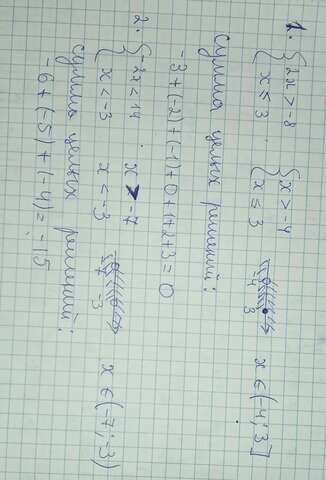 1. { 2x > -8   { x > -4
{ x ≤ 3   { x ≤ 3   -4 3   x ∈ (-4; 3]
Сумма целых решений:
-3+(-2)+(-1)+0+1+2+3=0
2. { -2x < 14   x > -7
{ x < -3   x < -3   -7 -3   x ∈ (-7; -3)
Сумма целых решений:
-6+(-5)+(-4)=-15